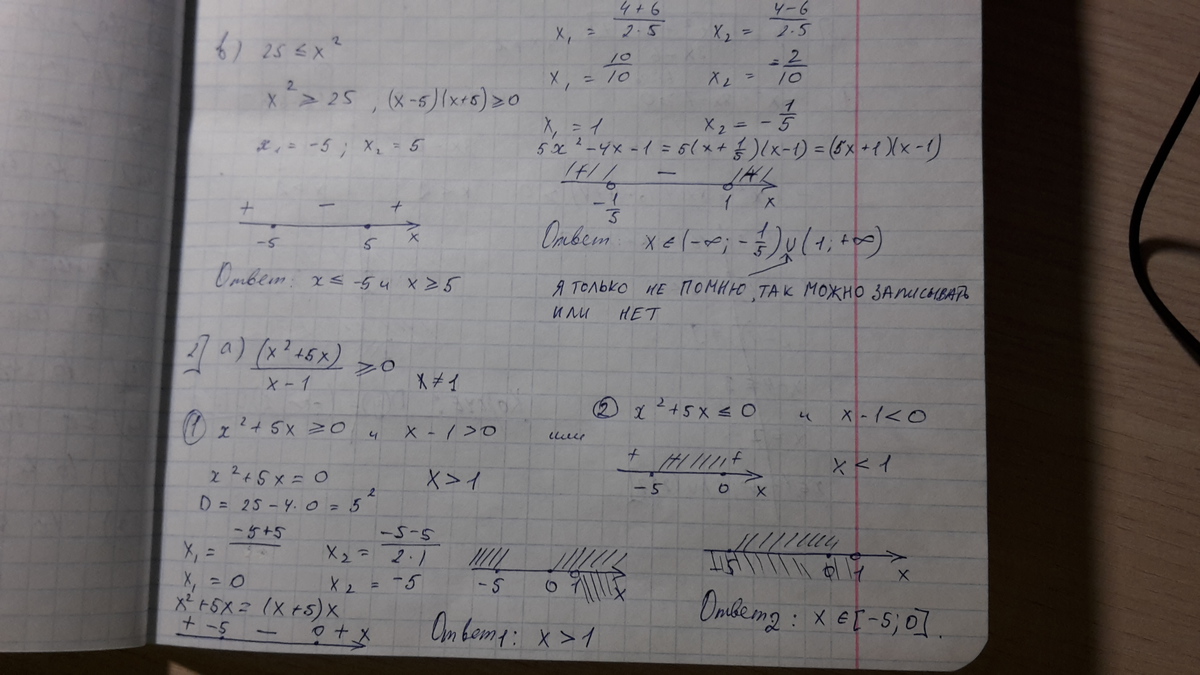 в) 25 ≤ x²
x² ≥ 25 , (x-5)(x+5) ≥ 0
x₁ = -5 ; x₂ = 5
+ − +
-5 5 x
Ответ: x ≤ -5 и x ≥ 5
x₁ = (4+6)/(2·5) x₂ = (4-6)/(2·5)
x₁ = 10/10 x₂ = -2/10
x₁ = 1 x₂ = -1/5
5x² - 4x - 1 = 5(x + 1/5)(x-1) = (5x+1)(x-1)
+ − +
-1/5 1 x
Ответ x ∈ (-∞; -1/5) ∪ (1; +∞)
Я ТОЛЬКО НЕ ПОМНЮ, ТАК МОЖНО ЗАПИСЫВАТЬ
ИЛИ НЕТ
2] а) (x²+5x)/(x-1) ≥ 0 x ≠ 1
① x² + 5x ≥ 0 и x - 1 > 0 или
x² + 5x = 0 x > 1
D = 25 - 4·0 = 5²
x₁ = -5+5 x₂ = (-5-5)/(2·1)
x₁ = 0 x₂ = -5
x² + 5x = (x+5)x
+ -5 − 0 + x
-5 0 1 x
Ответ₁: x > 1
② x² + 5x ≤ 0 и x - 1 < 0
+ +
-5 0 x x < 1
-5 0 1 x
Ответ₂: x ∈ [-5; 0].